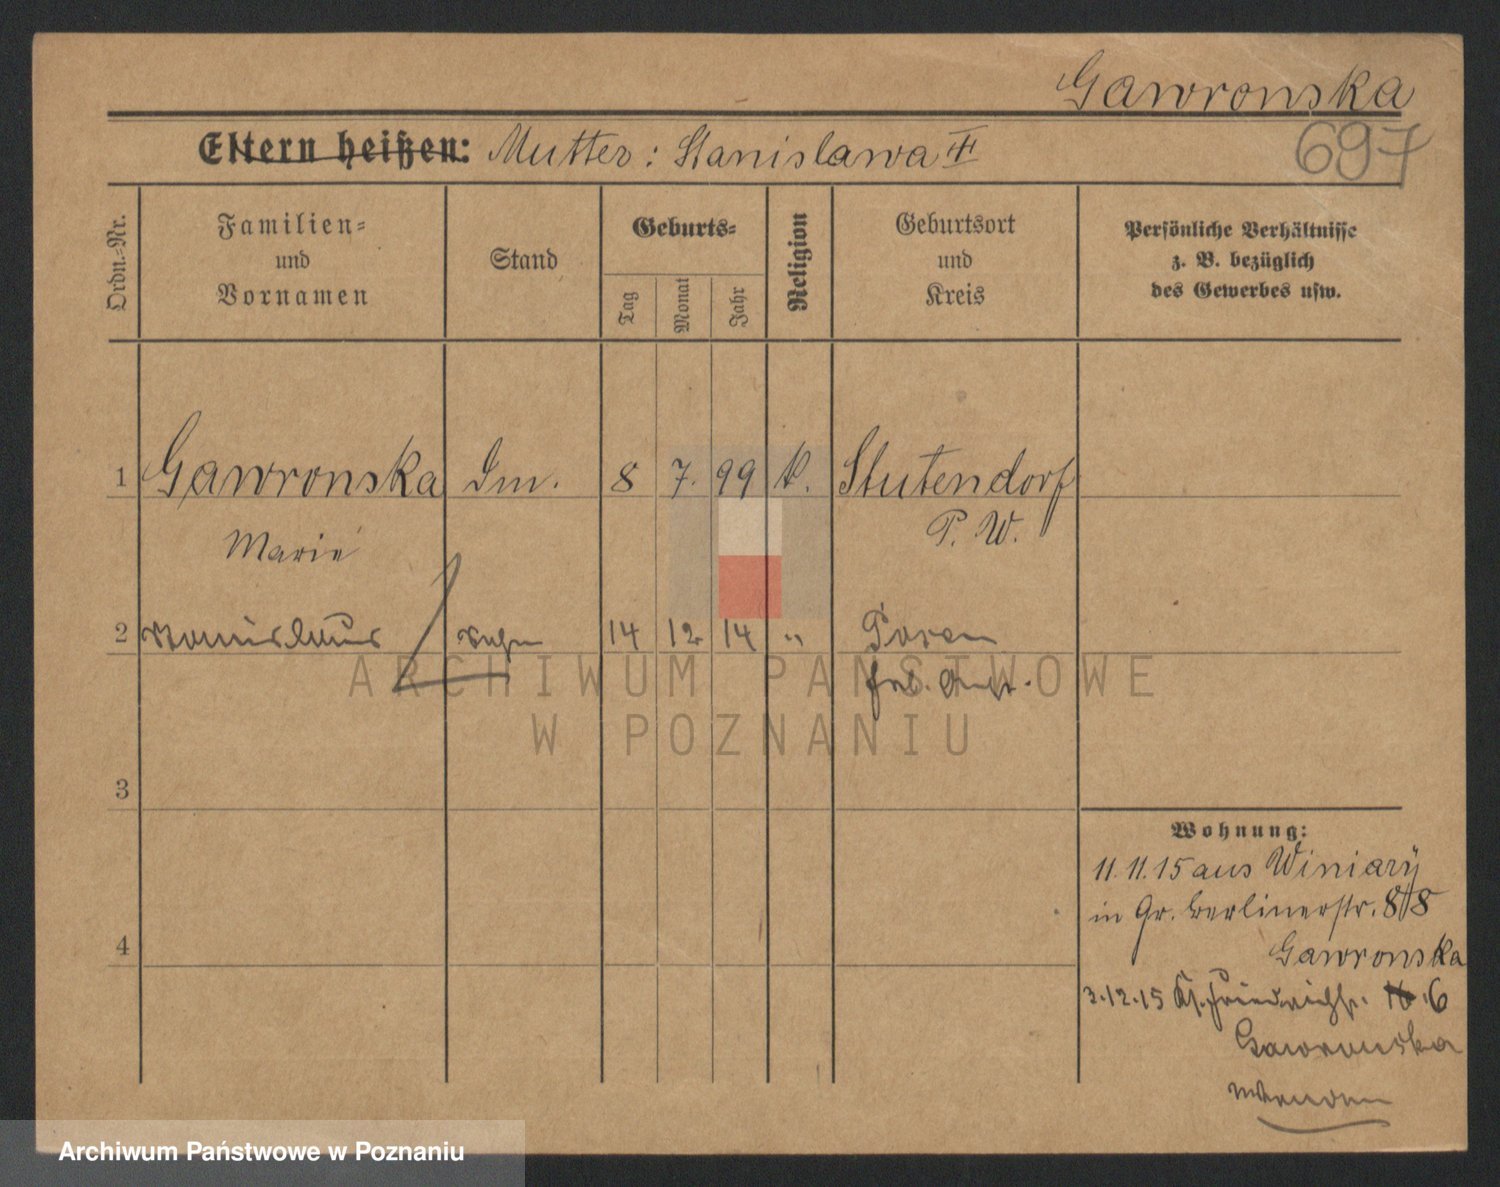 Gawronska
697
Eltern heißen: Mutter: Stanislawa
Ordn.=Nr.
Familien=
und
Vornamen
Stand
Geburts=
Tag
Monat
Jahr
Religion
Geburtsort
und
Kreis
Persönliche Verhältnisse
z. B. bezüglich
des Gewerbes usw.
1 Gawronska 8 7. 99 k. Stutendorf
Marie P. W.
2 Stanislaus Sohn 14 12 14 " Posen
3
4
Wohnung:
11.11.15 aus Winiary
in Gr. Berlinerstr. 88
Gawronska
3.12.15 Friedrichstr. 6
Gawronska
wenden
ARCHIWUM PAŃSTWOWE
W POZNANIU
Archiwum Państwowe w Poznaniu